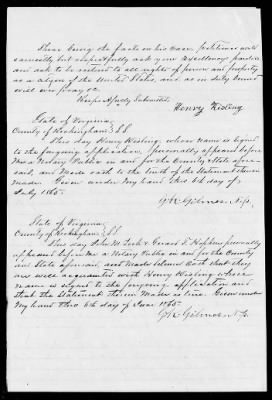 These being the facts in his case, petitioner would
earnestly but respectfully ask your Excellency's pardon
and ask to be restored to all rights of person and property
as a citizen of the United States, and as in duty bound
will ever pray &c.
Respectfully Submitted,
Henry Kisling
State of Virginia,
County of Rockingham, SS.
This day Henry Kisling, whose name is signed
to the foregoing application, personally appeared before
me a Notary Public in and for the County & State afore
said, and made oath to the truth of the statement therein
made. Given under my hand this 6th day of
July 1865.
N.P.
State of Virginia,
County of Rockingham, SS.
This day John & Hopkins personally
appeared before me a Notary Public in and for the County
and State aforesaid, and made solemn oath that they
are well acquainted with Henry Kisling whose
name is signed to the foregoing application and
that the statement therein made is true. Given under
my hand this 6th day of June 1865.